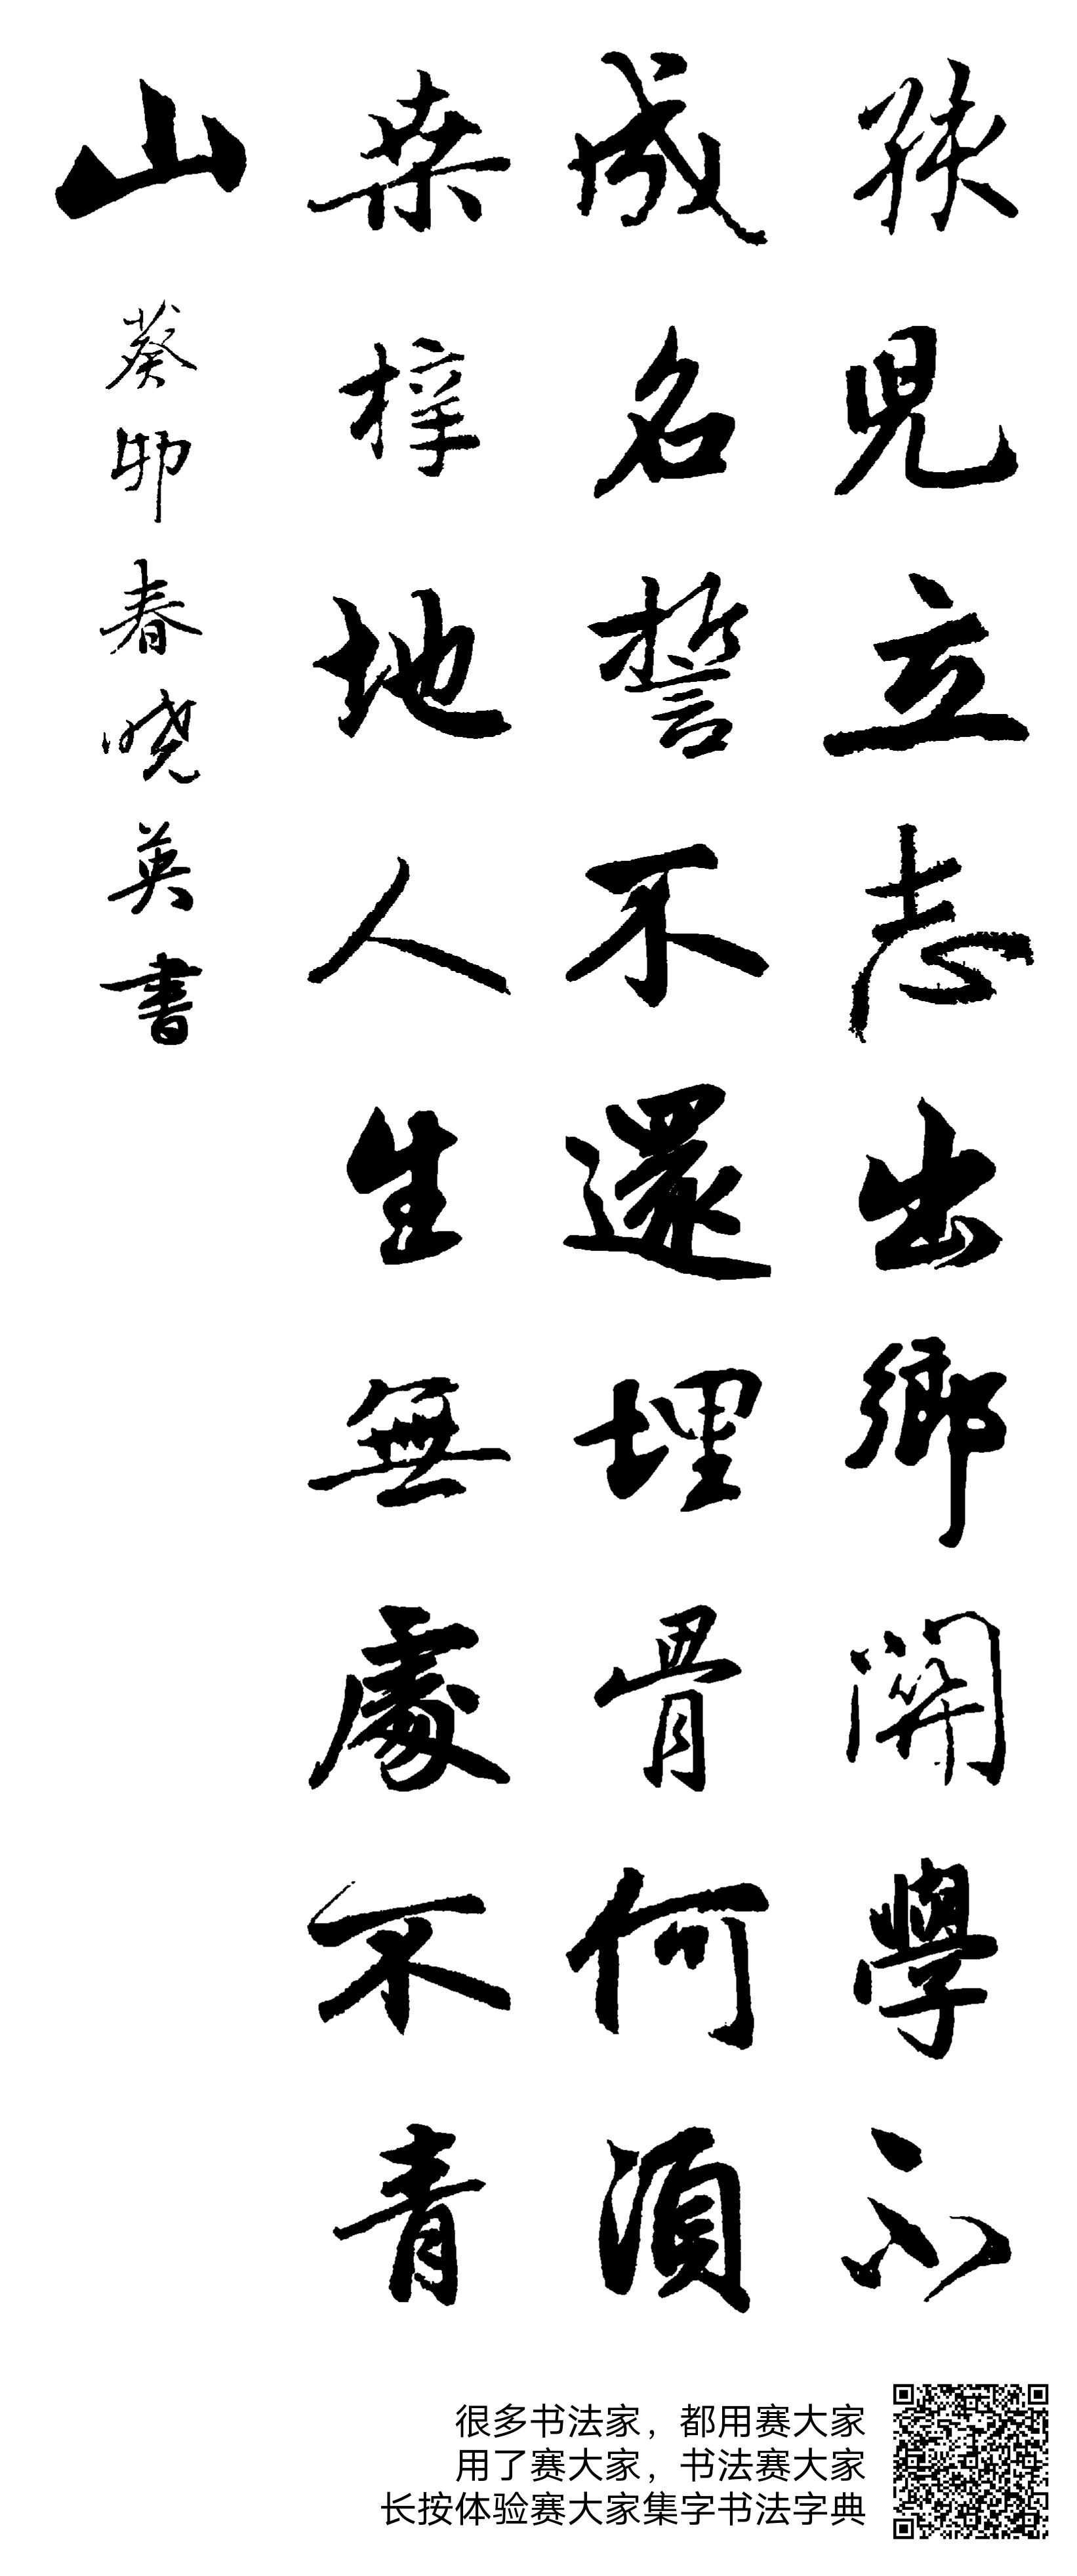 孩兒立志出鄉關學不
成名誓不還埋骨何須
桑梓地人生無處不青
山
葵卯春晓英書
很多书法家，都用赛大家
用了赛大家，书法赛大家
长按体验赛大家集字书法字典